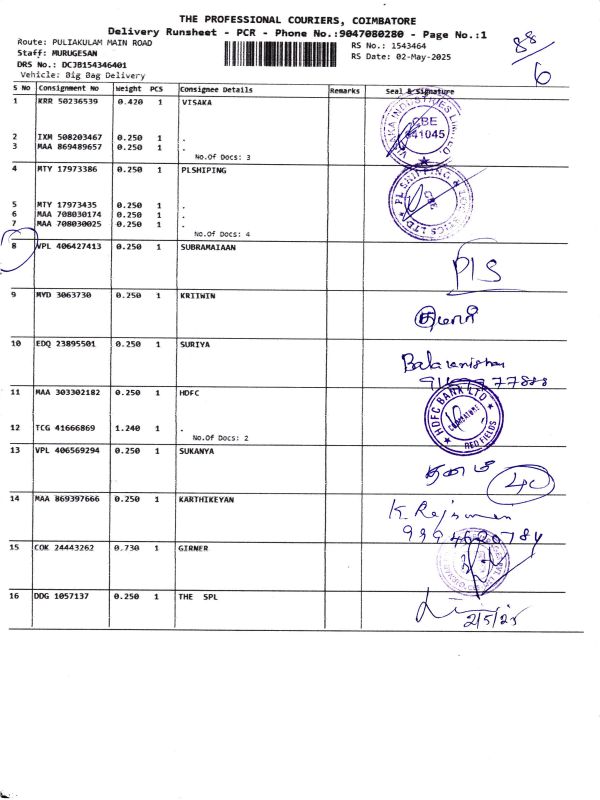 THE PROFESSIONAL COURIERS, COIMBATORE
Delivery Runsheet - PCR - Phone No.:9047080280 - Page No.:1
Route: PULIAKULAM MAIN ROAD
RS No.: 1543464
Staff: MURUGESAN
RS Date: 02-May-2025
DRS No.: DCJB154346401
Vehicle: Big Bag Delivery
88
6
S No Consignment No Weight PCS Consignee Details Remarks Seal & Signature
1 KRR 50236539 0.420 1 VISAKA
CBE
641045
2 IXM 508203467 0.250 1 .
3 MAA 869489657 0.250 1 .
No.Of Docs: 3
4 MTY 17973386 0.250 1 PLSHIPING
CBE
5 MTY 17973435 0.250 1 .
6 MAA 708030174 0.250 1 .
7 MAA 708030025 0.250 1 .
No.Of Docs: 4
8 VPL 406427413 0.250 1 SUBRAMAIAAN
PLS
9 MYD 3063730 0.250 1 KRIIWIN
10 EDQ 23895501 0.250 1 SURIYA
11 MAA 303302182 0.250 1 HDFC
HDFC BANK LTD
COIMBATORE
RED FIELDS
12 TCG 41666869 1.240 1 .
No.Of Docs: 2
13 VPL 406569294 0.250 1 SUKANYA
40
14 MAA 869397666 0.250 1 KARTHIKEYAN
15 COK 24443262 0.730 1 GIRNER
16 DDG 1057137 0.250 1 THE SPL
2/5/25